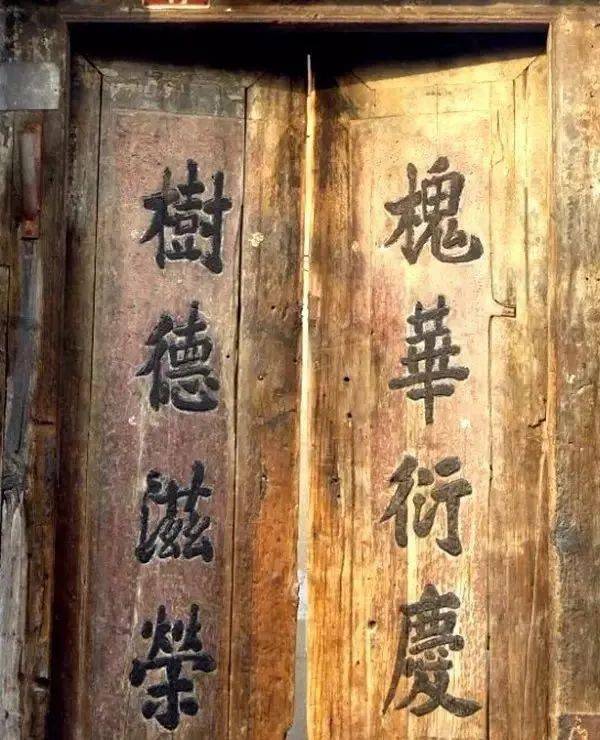 槐華衍慶
樹德滋榮